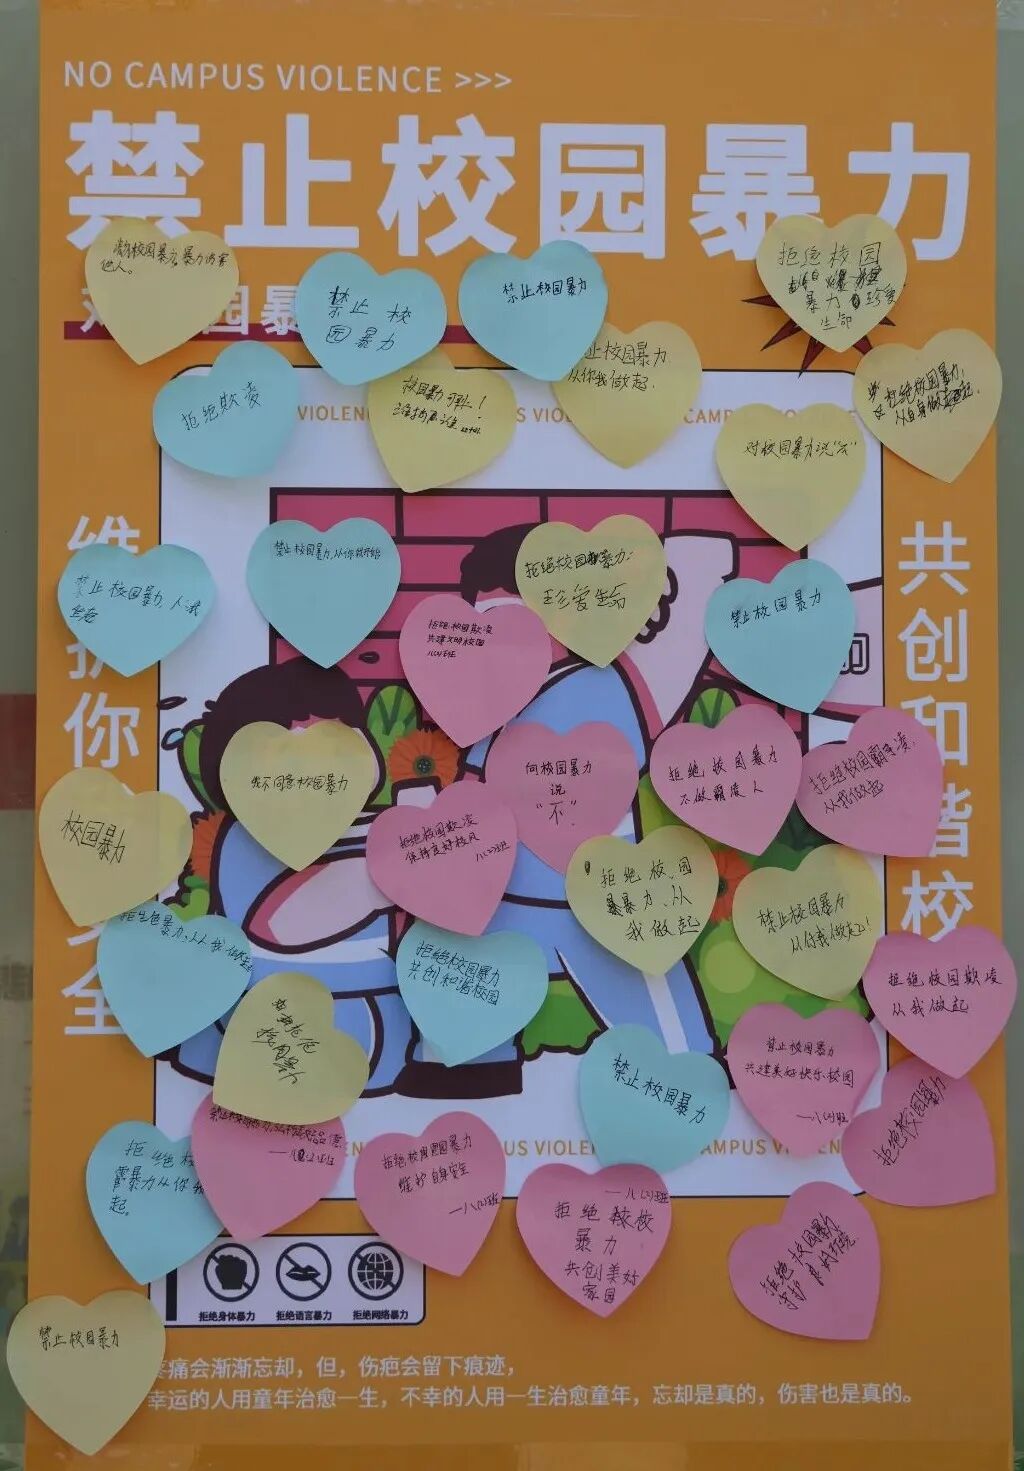 NO CAMPUS VIOLENCE >>>
禁止校园暴力
校园暴力,暴力伤害
他人。
禁止校
园暴力
禁止校园暴力
拒绝校园
暴力珍爱
生命
园暴
拒绝欺凌
校园暴力可耻!
止校园暴力
从你我做起.
拒绝校园暴力,
从自身做起.
VIOLEN
CAMPUS VIO
对校园暴力说“不”
维护你
全
共创和谐校
禁止校园暴力,人人
禁止校园暴力,从你我开始
拒绝校园暴力:
珍爱生命
禁止校园暴力
拒绝校园欺凌
共建文明校园
八(2)班
我不同意校园暴力
向校园暴力
说
“不”.
拒绝校园暴力
不做霸凌人
拒绝校园霸凌,
从我做起
校园暴力
拒绝校园欺凌
保持良好校风
八(2)班
拒绝校园
暴力、从
我做起
禁止校园暴力
从你我做起!
暴力,从我做
拒绝校园暴力
共创和谐校园
拒绝校园欺凌
从我做起
拒绝
校园暴力
禁止校园暴力
禁止校园暴力
共建美好快乐校园
一八(2)班
拒绝校园暴力
拒绝校
暴力从你我
起。
拒绝校园暴力
维护自身安全
一八(2)班
VIOLENCE
CAMPUS VIOLENCE
一八(2)班
拒绝校
暴力
共创美好
家园
拒绝校园暴力
守护良好环境
拒绝身体暴力
拒绝语言暴力
拒绝网络暴力
禁止校园暴力
疼痛会渐渐忘却,但,伤疤会留下痕迹,
幸运的人用童年治愈一生,不幸的人用一生治愈童年,忘却是真的,伤害也是真的。